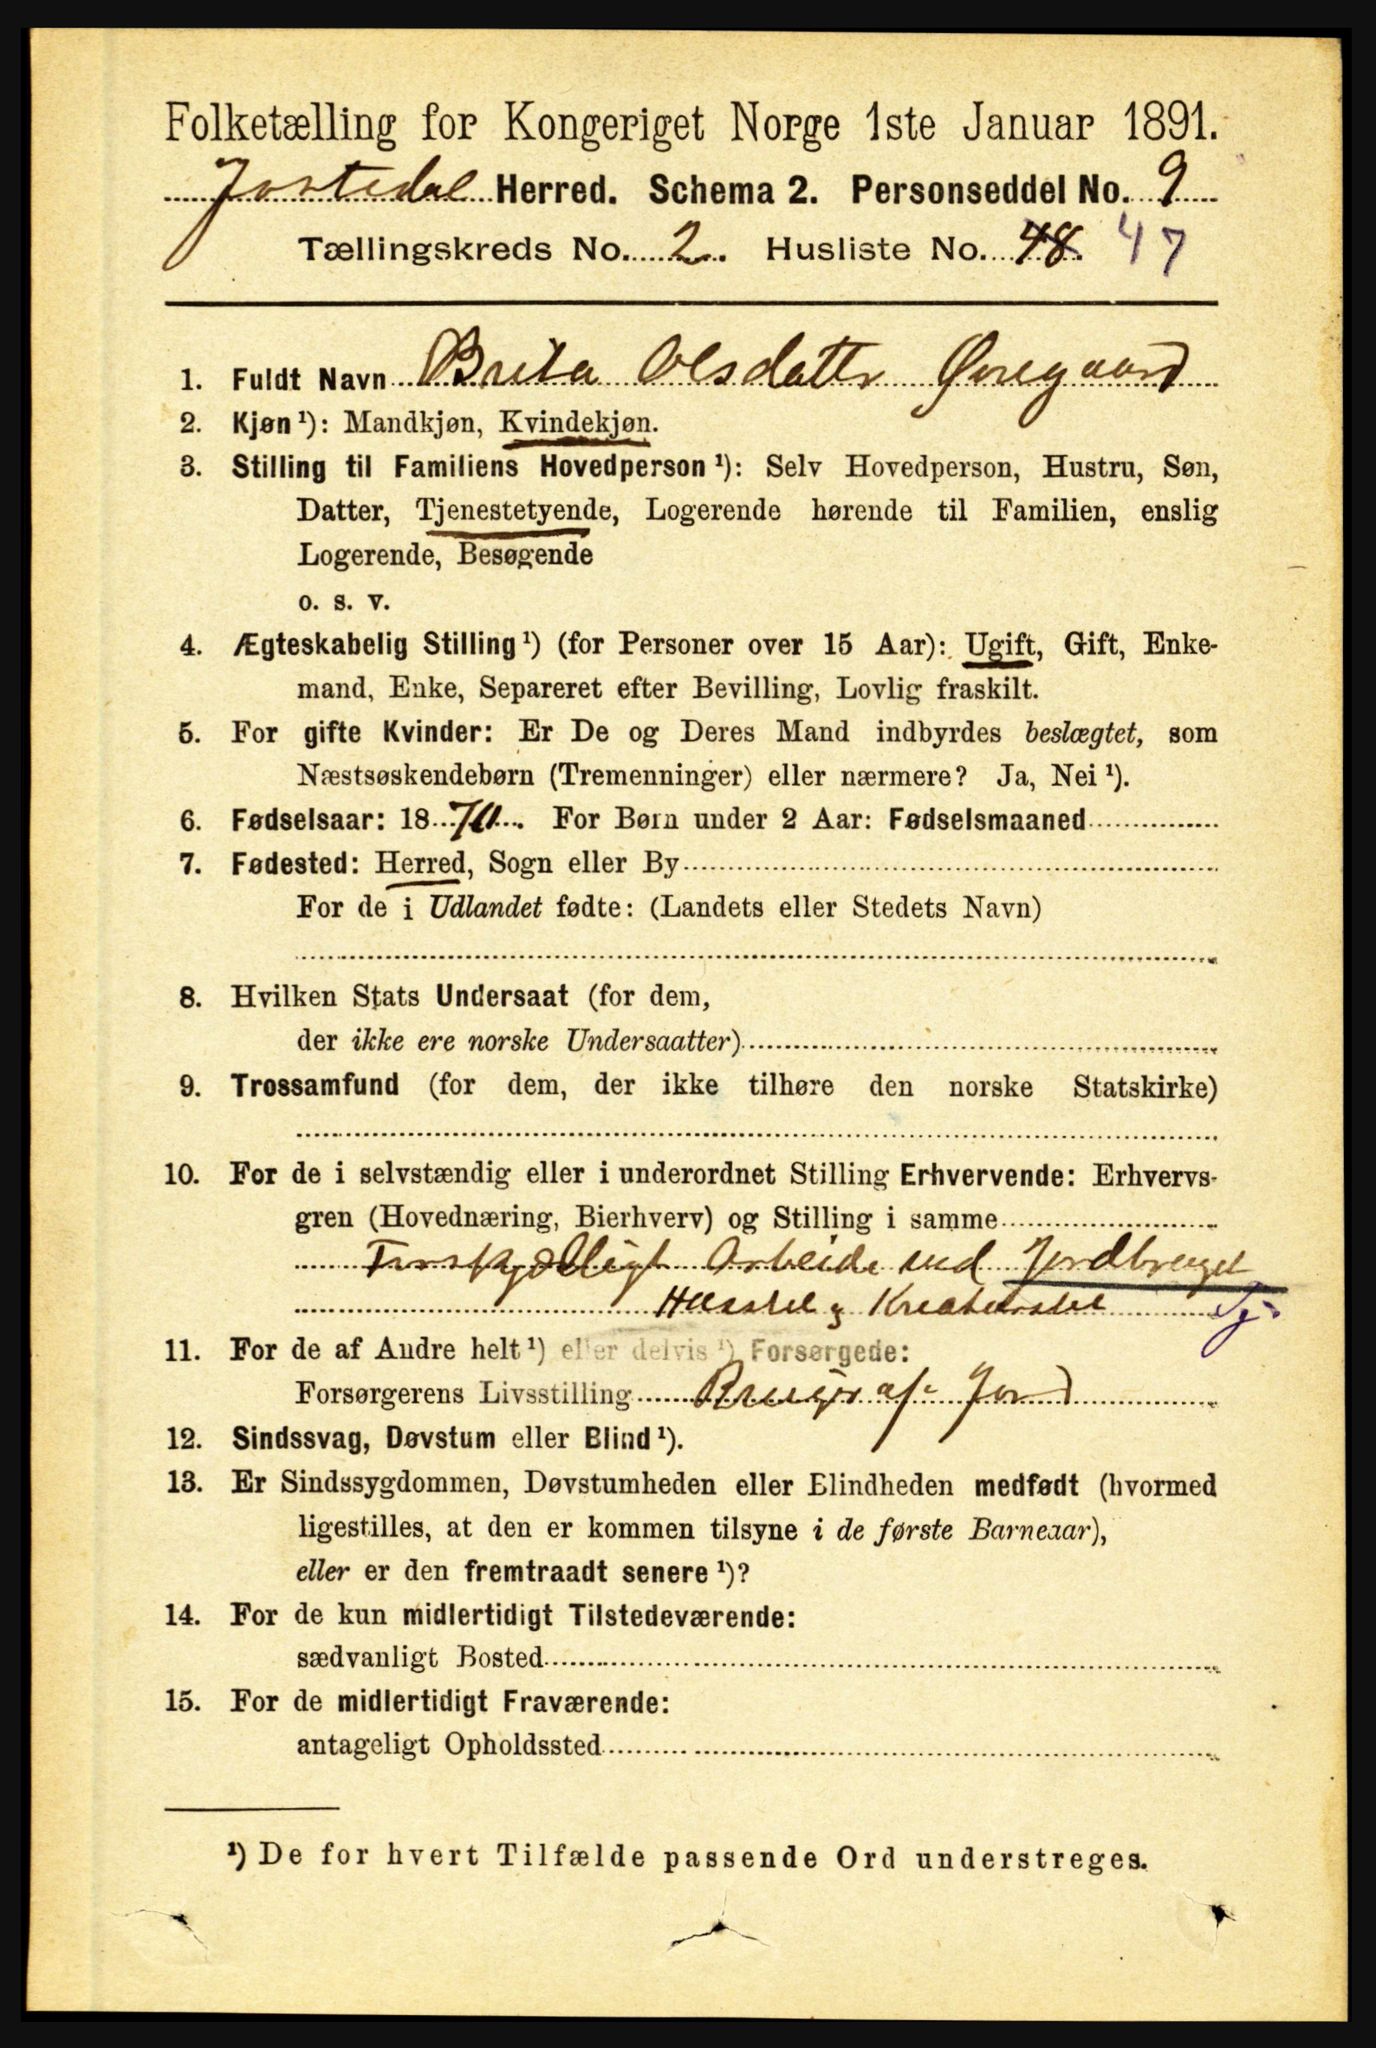 Folketælling for Kongeriget Norge 1ste Januar 1891.
Jostedal Herred. Schema 2. Personseddel No. 9
Tællingskreds No. 2. Husliste No. 48. 47
1. Fuldt Navn Brita Olsdatter Øvregaard
2. Kjøn¹): Mandkjøn, Kvindekjøn.
3. Stilling til Familiens Hovedperson¹): Selv Hovedperson, Hustru, Søn,
Datter, Tjenestetyende, Logerende hørende til Familien, enslig
Logerende, Besøgende
o. s. v.
4. Ægteskabelig Stilling¹) (for Personer over 15 Aar): Ugift, Gift, Enke-
mand, Enke, Separeret efter Bevilling, Lovlig fraskilt.
5. For gifte Kvinder: Er De og Deres Mand indbyrdes beslægtet, som
Næstsøskendebørn (Tremenninger) eller nærmere? Ja, Nei¹).
6. Fødselsaar: 18 70. For Børn under 2 Aar: Fødselsmaaned
7. Fødested: Herred, Sogn eller By
For de i Udlandet fødte: (Landets eller Stedets Navn)
8. Hvilken Stats Undersaat (for dem,
der ikke ere norske Undersaatter)
9. Trossamfund (for dem, der ikke tilhøre den norske Statskirke)
10. For de i selvstændig eller i underordnet Stilling Erhvervende: Erhvervs-
gren (Hovednæring, Bierhverv) og Stilling i samme
Forskjelligt Arbeide ved Jordbruget
Husstel og Kreaturstel Tj-
11. For de af Andre helt¹) eller delvis¹) Forsørgede:
Forsørgerens Livsstilling Bruger af Jord
12. Sindssvag, Døvstum eller Blind¹).
13. Er Sindssygdommen, Døvstumheden eller Blindheden medfødt (hvormed
ligestilles, at den er kommen tilsyne i de første Barneaar),
eller er den fremtraadt senere¹)?
14. For de kun midlertidigt Tilstedeværende:
sædvanligt Bosted
15. For de midlertidigt Fraværende:
antageligt Opholdssted
¹) De for hvert Tilfælde passende Ord understreges.